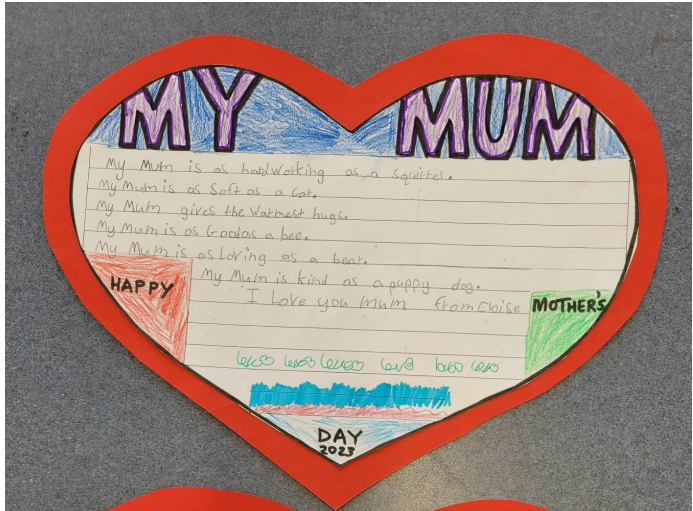 MY MUM
My Mum is as hardworking as a squirrel.
My Mum is as Soft as a cat.
My Mum gives the warmest hugs.
My Mum is as Good as a bee.
My Mum is as Loving as a bear.
My Mum is kind as a puppy dog.
I Love you mum from Eloise
HAPPY
MOTHER'S
DAY
2023